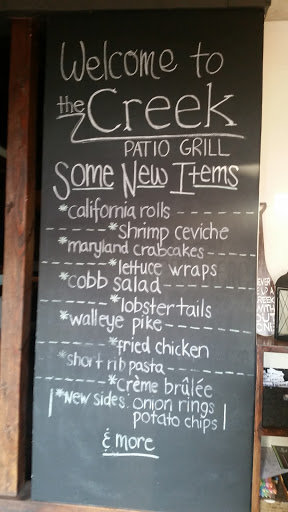 Welcome to
the Creek
PATIO GRILL
Some New Items
*california rolls
*shrimp ceviche
*maryland crabcakes
*lettuce wraps
*cobb salad
*lobster tails
*walleye pike
*fried chicken
*short rib pasta
*crème brûlée
*New sides: onion rings
potato chips
& more
CREEK
WITH